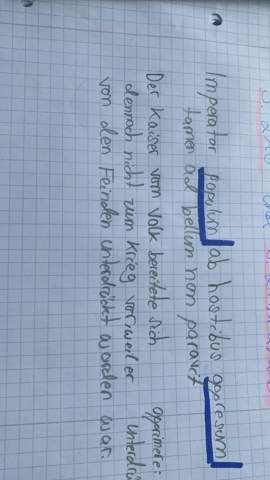 Imperator populum ab hostibus oppresum
tamen ad bellum non paravit
Der Kaiser vom Volk bereitete sich
dennoch nicht zum Krieg vor, weil er
von den Feinden unterdrückt worden war.
opprimere:
unterdrü